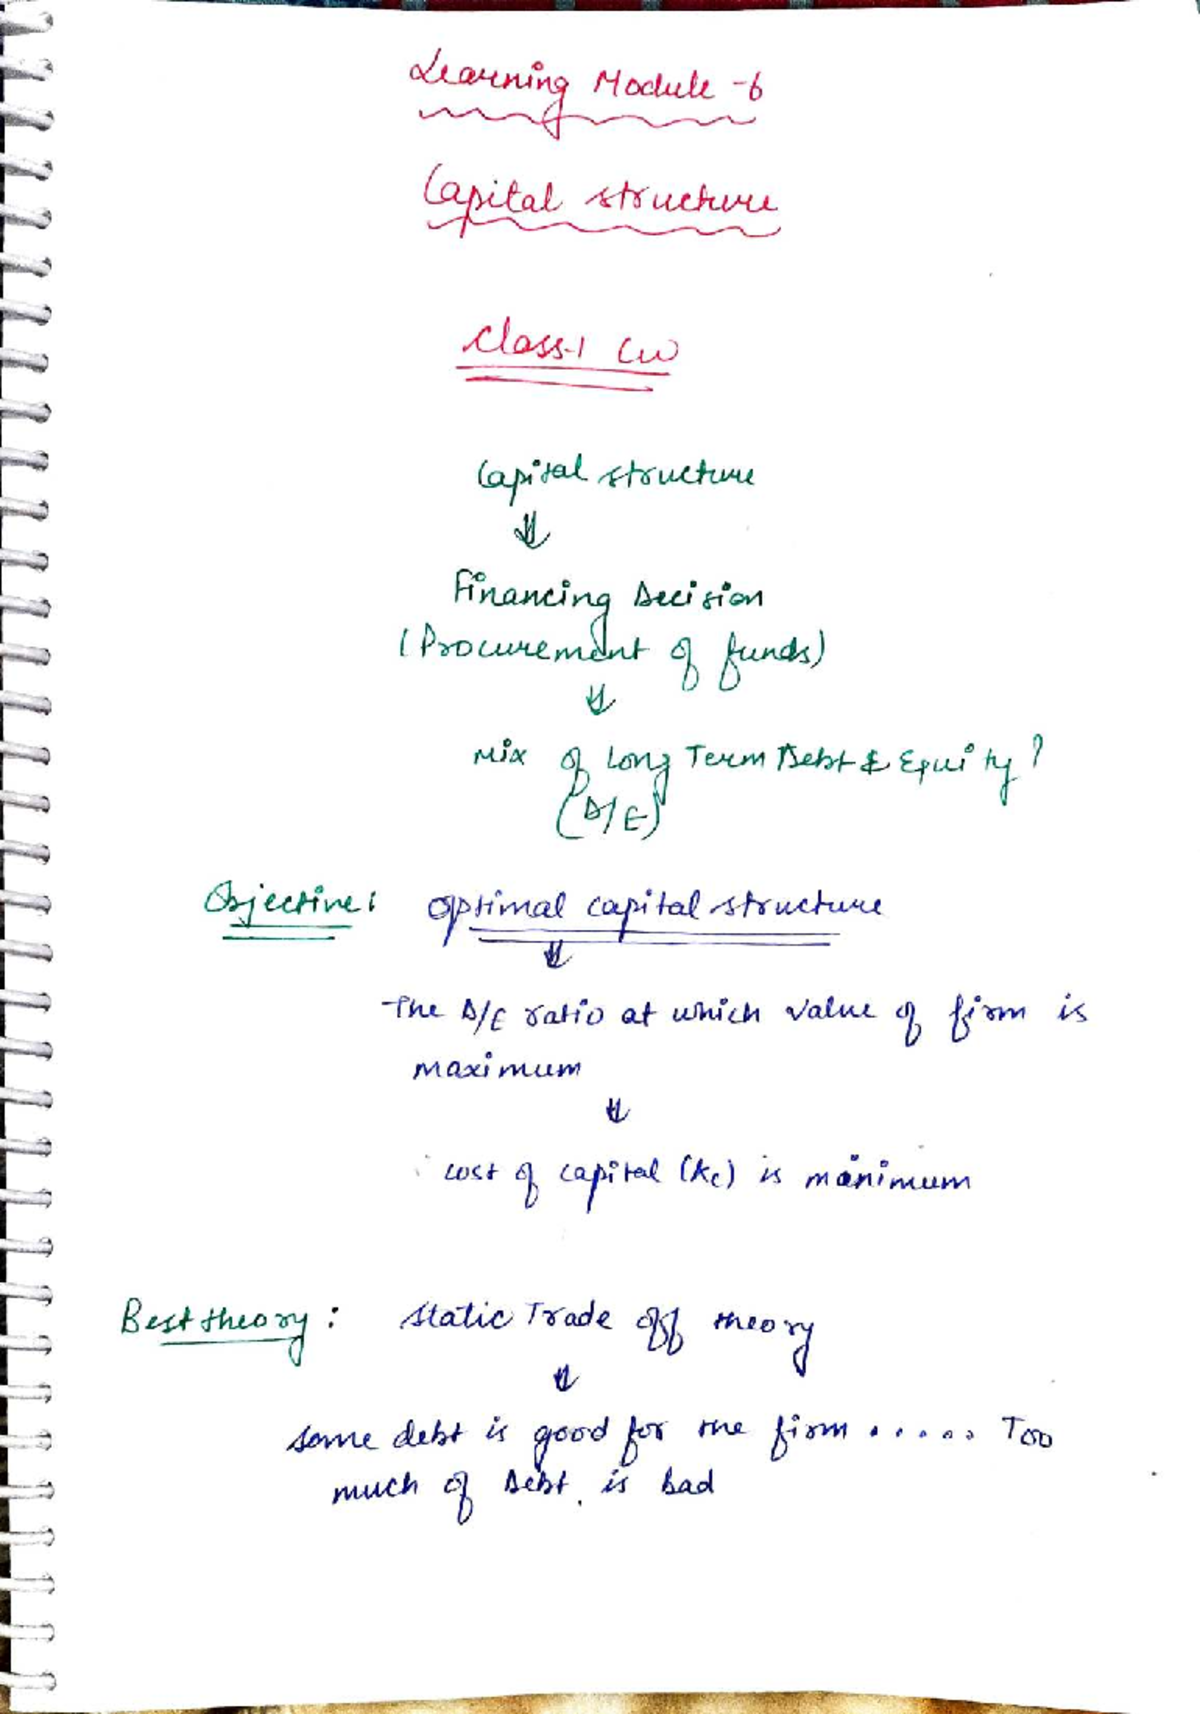 Learning Module -6
Capital structure
Class-1 CW
Capital structure
⇓
Financing Decision
(Procurement of funds)
⇓
Mix of Long Term Debt & Equity?
(D/E)
Objective: Optimal capital structure
⇓
The D/E ratio at which value of firm is
maximum
⇓
cost of capital (kc) is minimum
Best theory: Static Trade off theory
⇓
some debt is good for the firm ..... Too
much of Debt is bad